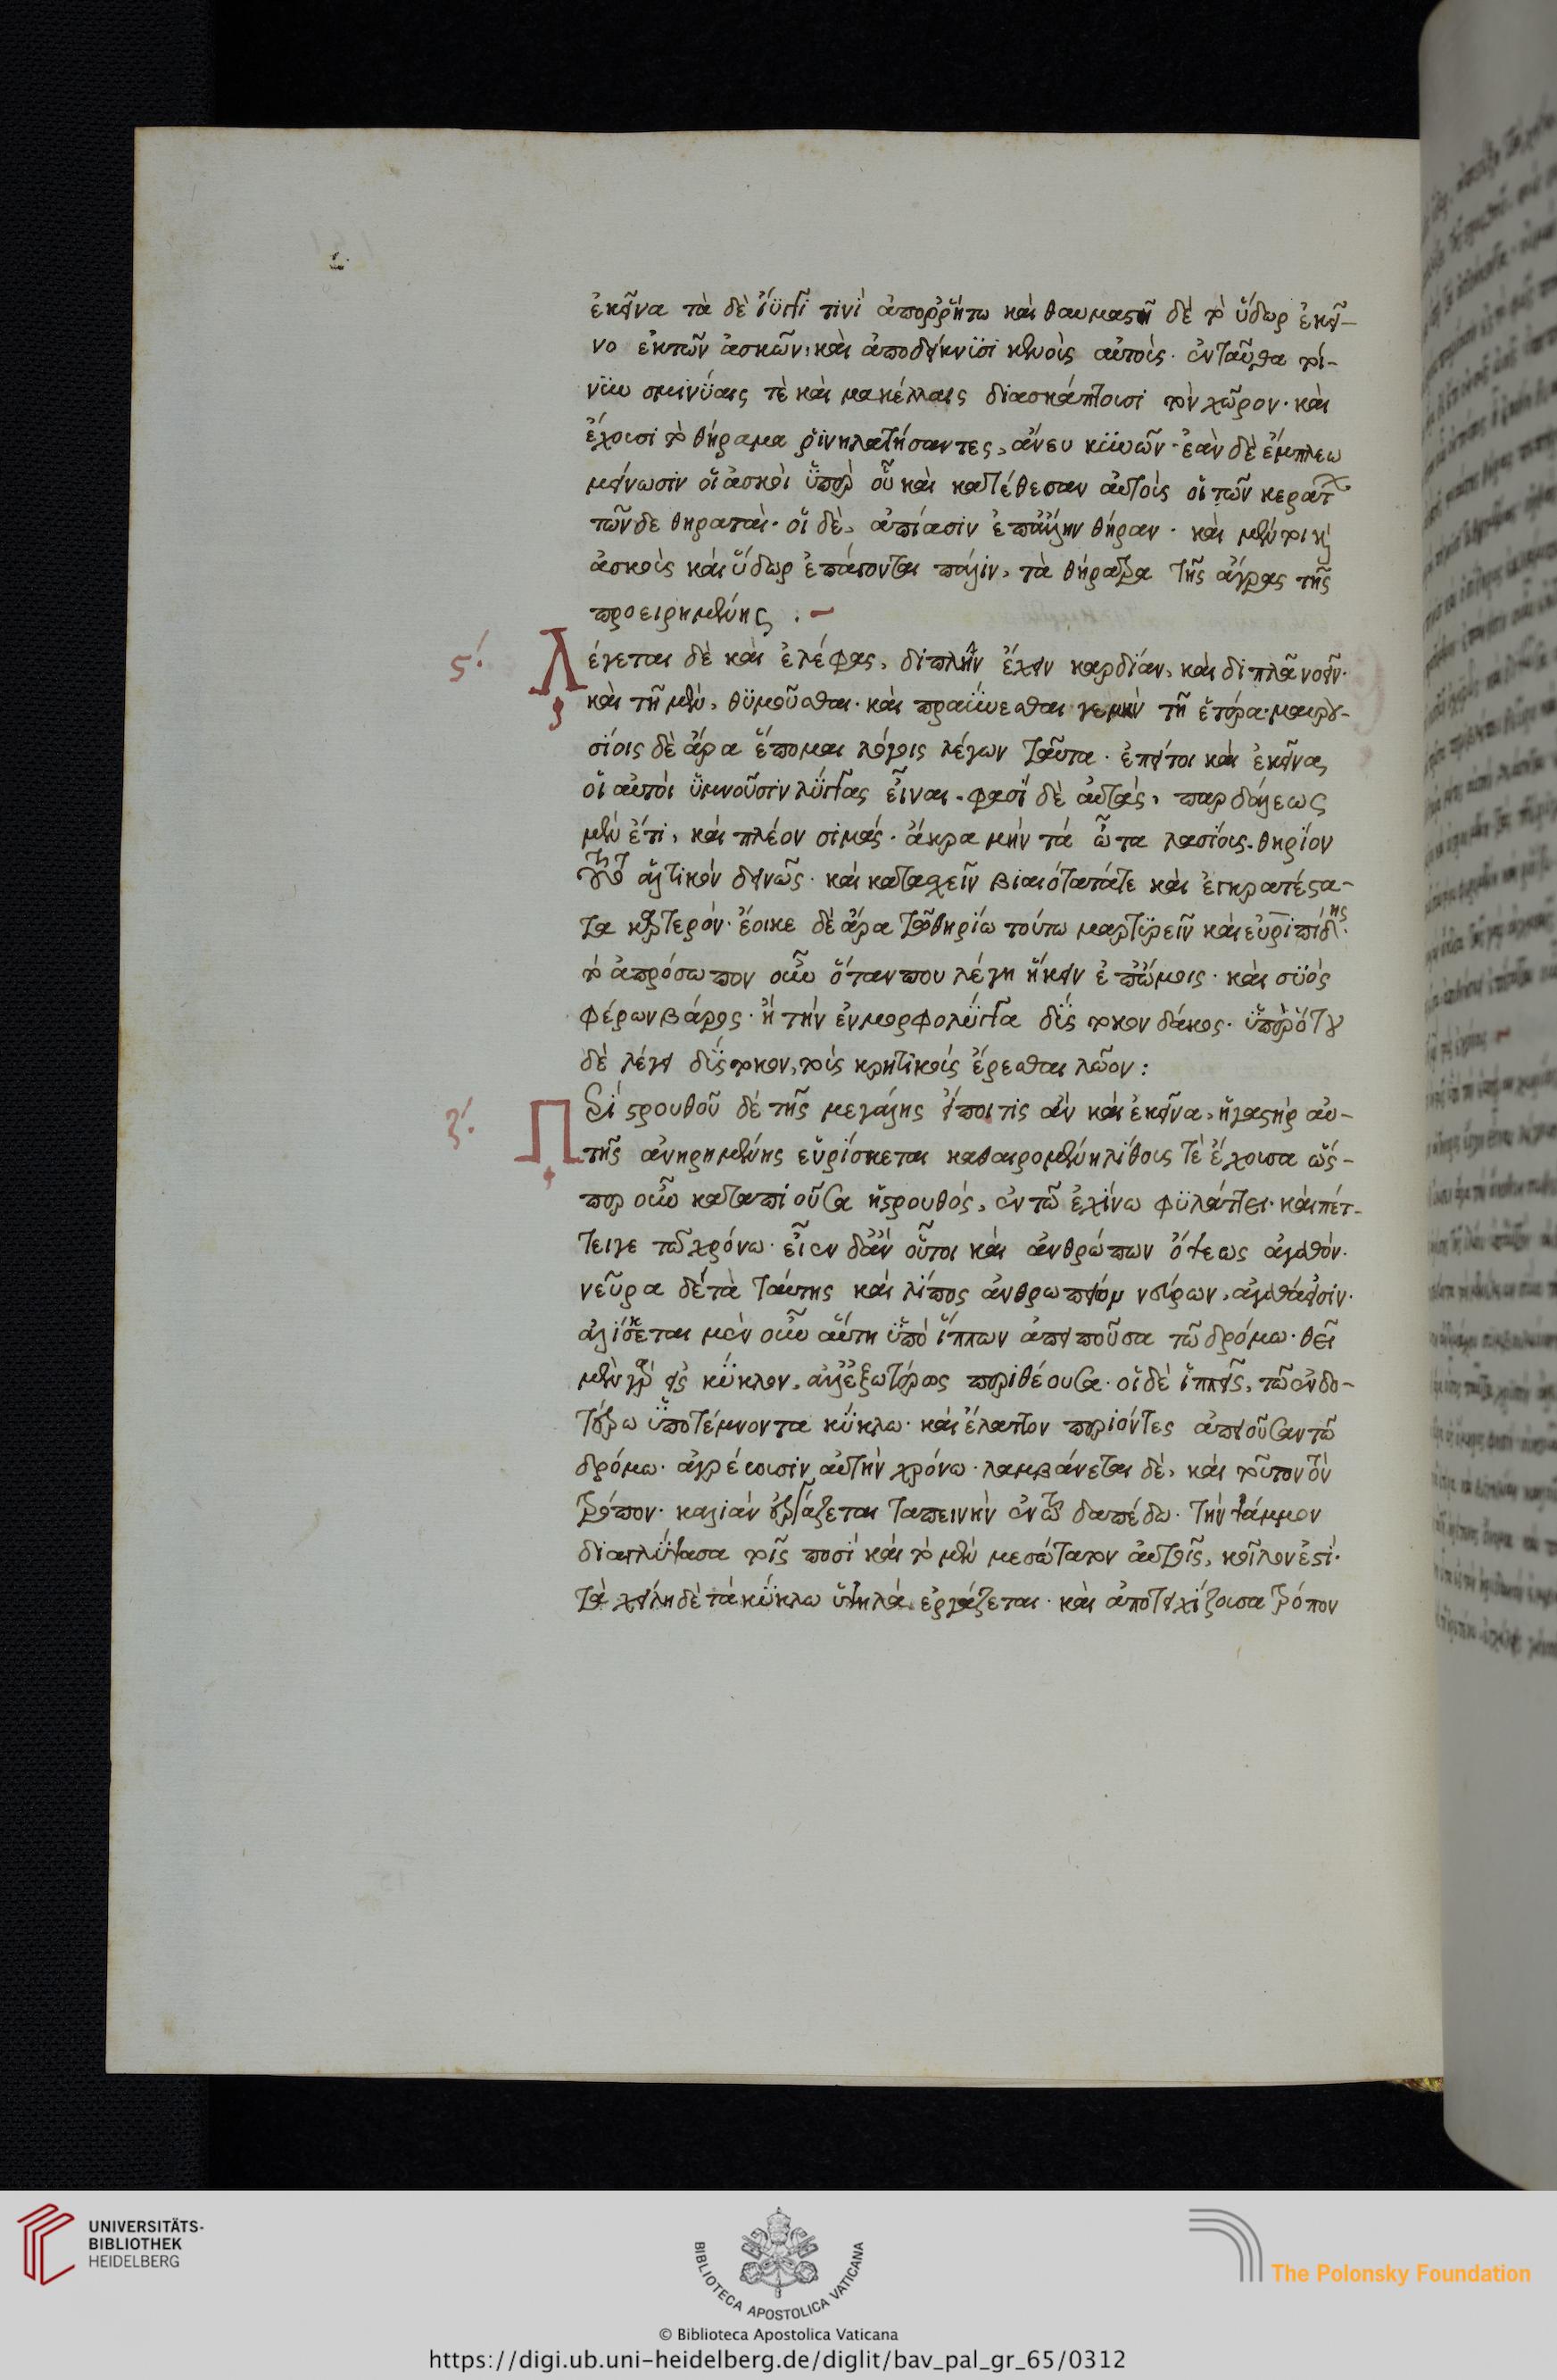 ἐκεῖνα τὰ δὲ ἴϋγγί τινι ἀπορρήτω καὶ θαυμαστῆ δὲ τὸ ὕδωρ ἐκεῖ-
νο ἐκ τῶν ἀσκῶν, καὶ ἀποδείκνϋσι κενοὶς αὐτοὶς. ἐνταῦθα τοί-
νϋν σμινύαις τὲ καὶ μακέλλαις διασκάπτουσι τὸν χῶρον. καὶ
ἔχουσι τὸ θήραμα ῥινηλατήσαντες, ἄνευ κϋνῶν. ἐὰν δὲ ἔμπλεω
μείνωσιν οἵ ἀσκοὶ ὕπερ οὗ καὶ κατέθεσαν αὐτοὶς οἵ τῶν κεραστ
τῶν δε θηραταὶ. οἵ δὲ, ἀπίασιν ἐπ ἄλλην θήραν. καὶ μέντοι καὶ
ἀσκοὶς καὶ ὕδωρ ἐπάγονται πάλιν, τὰ θήρατρα τῆς ἄγρας τῆς
προειρημένης :–
ϛ΄. Λέγεται δὲ καὶ ἐλέφας, διπλῆν ἔχειν καρδίαν, καὶ διπλᾶ νοεῖν.
καὶ τῆ μὲν, θϋμοῦσθαι. καὶ πραΰνεσθαι γεμὴν τῆ ἕτέρα. μαυρου-
σίοις δὲ ἄρα ἕπομαι λόγοις λέγων ταῦτα. ἐπείτοι καὶ ἐκεῖνα,
οἵ αὐτοὶ ὕμνοῦσιν λϋγγας εἶναι. φασῒ δὲ αὐτὰς, παρδάλεως
μὲν ἔτι, καὶ πλέον σιμάς. ἄκρα μὴν τὰ ὦτα λασίους. θηρίον
τοῦτο ἅλτικὸν δεινῶς. καὶ κατασχεῖν βιαιότατάτε καὶ ἐγκρατέστα-
τα καρτερόν. ἔοικε δὲ ἄρα τῶ θηρίω τούτω μαρτϋρεῖν καὶ εὐριπίδης.
τὸ ἀπρόσωπον οὖν ὅταν που λέγη ἥκειν ἐπ ὤμοις. καὶ σϋὸς
φέρων βάρος. ἢ τὴν ἐνμορφολϋγγα δϋς τοκον δάκος. ὕπὲρ ὅτου
δὲ λέγει δϋς τοκον, τοὶς κρητικοὶς ἔρεσθαι λῶον :
ζ΄. Περὶ στρουθοῦ δὲ τῆς μεγάλης εἴποι τις ἂν καὶ ἐκεῖνα, ἥ γαστὴρ αὐ-
τῆς ἀνηρημένης εὕρίσκεται καθαιρομένη λίθους τὲ ἔχουσα οὕς-
περ οὖν καταπιοῦσα ἥ στρουθὸς, ἐν τῶ ἐχίνω φϋλάττει. καὶ πέτ-
τει γε τῶ χρόνω. εἶεν δ ἂν οὗτοι καὶ ἀνθρώπων ὄψεως ἀγαθόν.
νεῦρα δὲ τὰ ταύτης καὶ λίπος ἀνθρωπείων νεύρων, ἀγαθά εἰσιν.
ἁλίσκεται μὲν οὖν αὕτη ὕπὸ ἵππων ἀπειποῦσα τῶ δρόμω. θεῖ
μὲν γὰρ εἰς κϋκλον, ἀλλ ἐξωτέρως περιθέουσα. οἵ δὲ ἵππεῖς, τῶ ἐνδο-
τέρω ὕποτέμνοντα κϋκλω. καὶ ἔλαττον περιόντες ἀπειοῦσαν τῶ
δρόμω. ἀγρέουσιν αὐτὴν χρόνω. λαμβάνεται δὲ, καὶ τοῦτον τὸν
τρόπον. καλιὰν ἐργάζεται ταπεινὴν ἐν τῶ δαπέδω. τὴν ψάμμον
διαγλϋψασα τοῖς ποσὶ καὶ τὸ μὲν μεσώτατον αὐτοῖς, κοῖλον ἐστί.
τὰ χείλη δὲ τὰ κϋκλω ὕψηλὰ ἐργάζεται. καὶ ἀποτειχίζουσα τρόπον
UNIVERSITÄTS-
BIBLIOTHEK
HEIDELBERG
BIBLIOTECA APOSTOLICA VATICANA
The Polonsky Foundation
© Biblioteca Apostolica Vaticana
https://digi.ub.uni-heidelberg.de/diglit/bav_pal_gr_65/0312